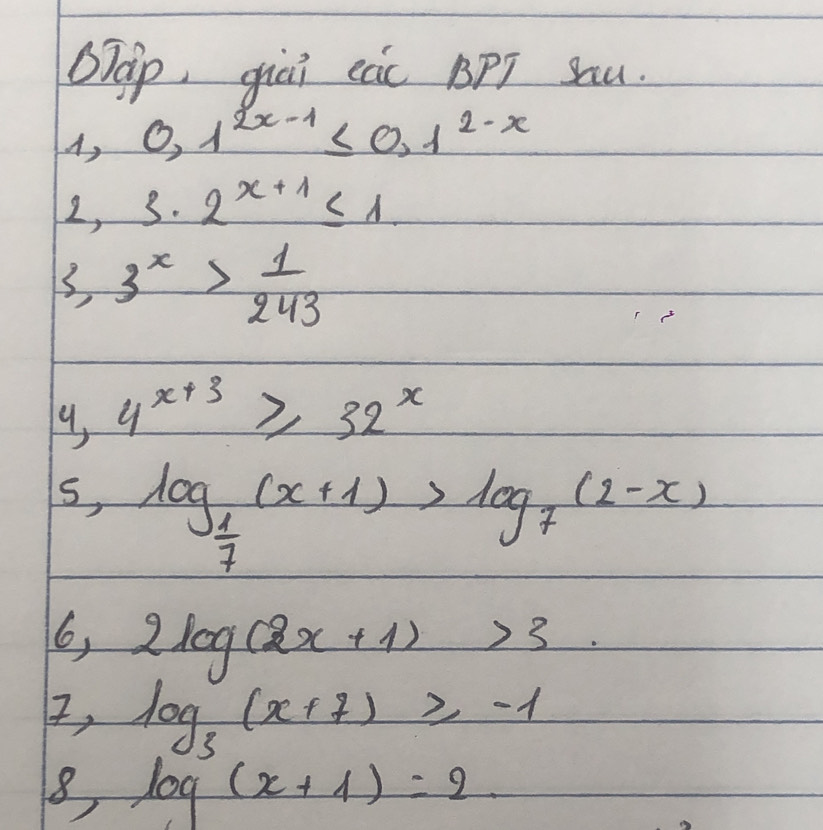 BTập. giải các BPT sau.
1, 0,1^{2x-1} ≤ 0,1^{2-x}
2, 3. 2^{x+1} ≤ 1.
3, 3^x > \frac{1}{243}
4, 4^{x+3} ≥ 32^x
5, log_{\frac{1}{7}} (x+1) > log_7 (2-x)
6, 2log(2x+1) >3 .
7, log_3 (x+7) ≥ -1
8, log (x+1) = 2.